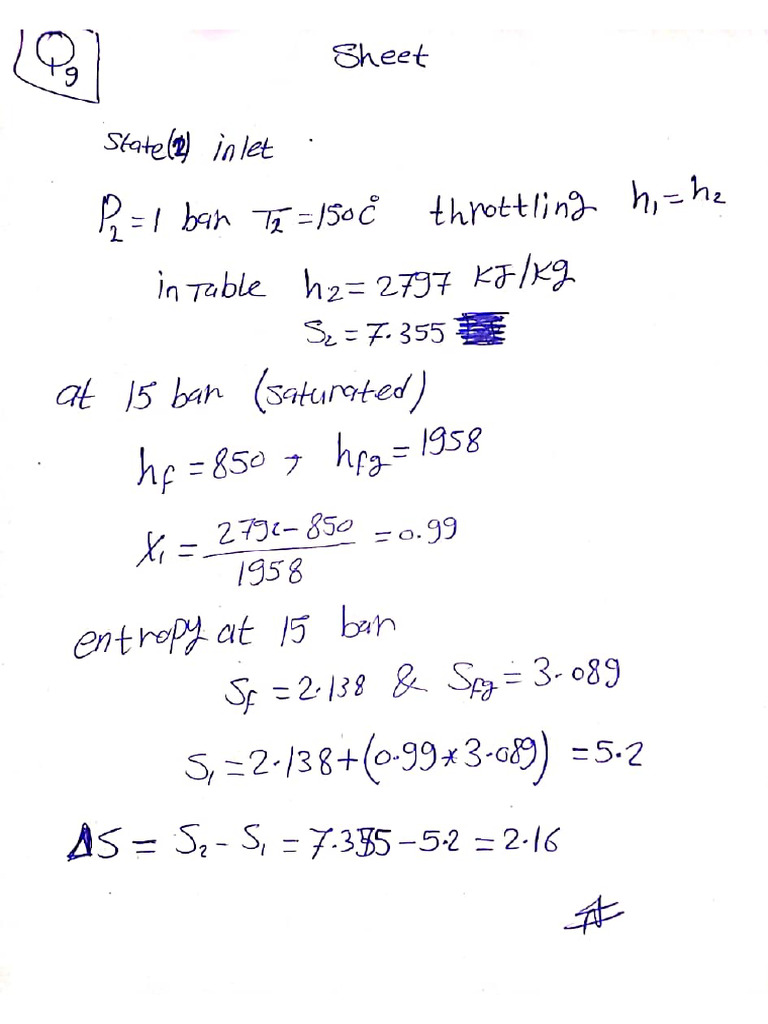 Q9
Sheet
State(2) inlet
P2 = 1 bar T2 = 150 C° throttling h1 = h2
in Table h2 = 2797 KJ/Kg
S2 = 7.355
at 15 bar (saturated)
hf = 850 , hfg = 1958
X1 = 279 - 850 / 1958 = 0.99
entropy at 15 bar
Sf = 2.138 & Sfg = 3.089
S1 = 2.138 + (0.99 * 3.089) = 5.2
ΔS = S2 - S1 = 7.355 - 5.2 = 2.16
#